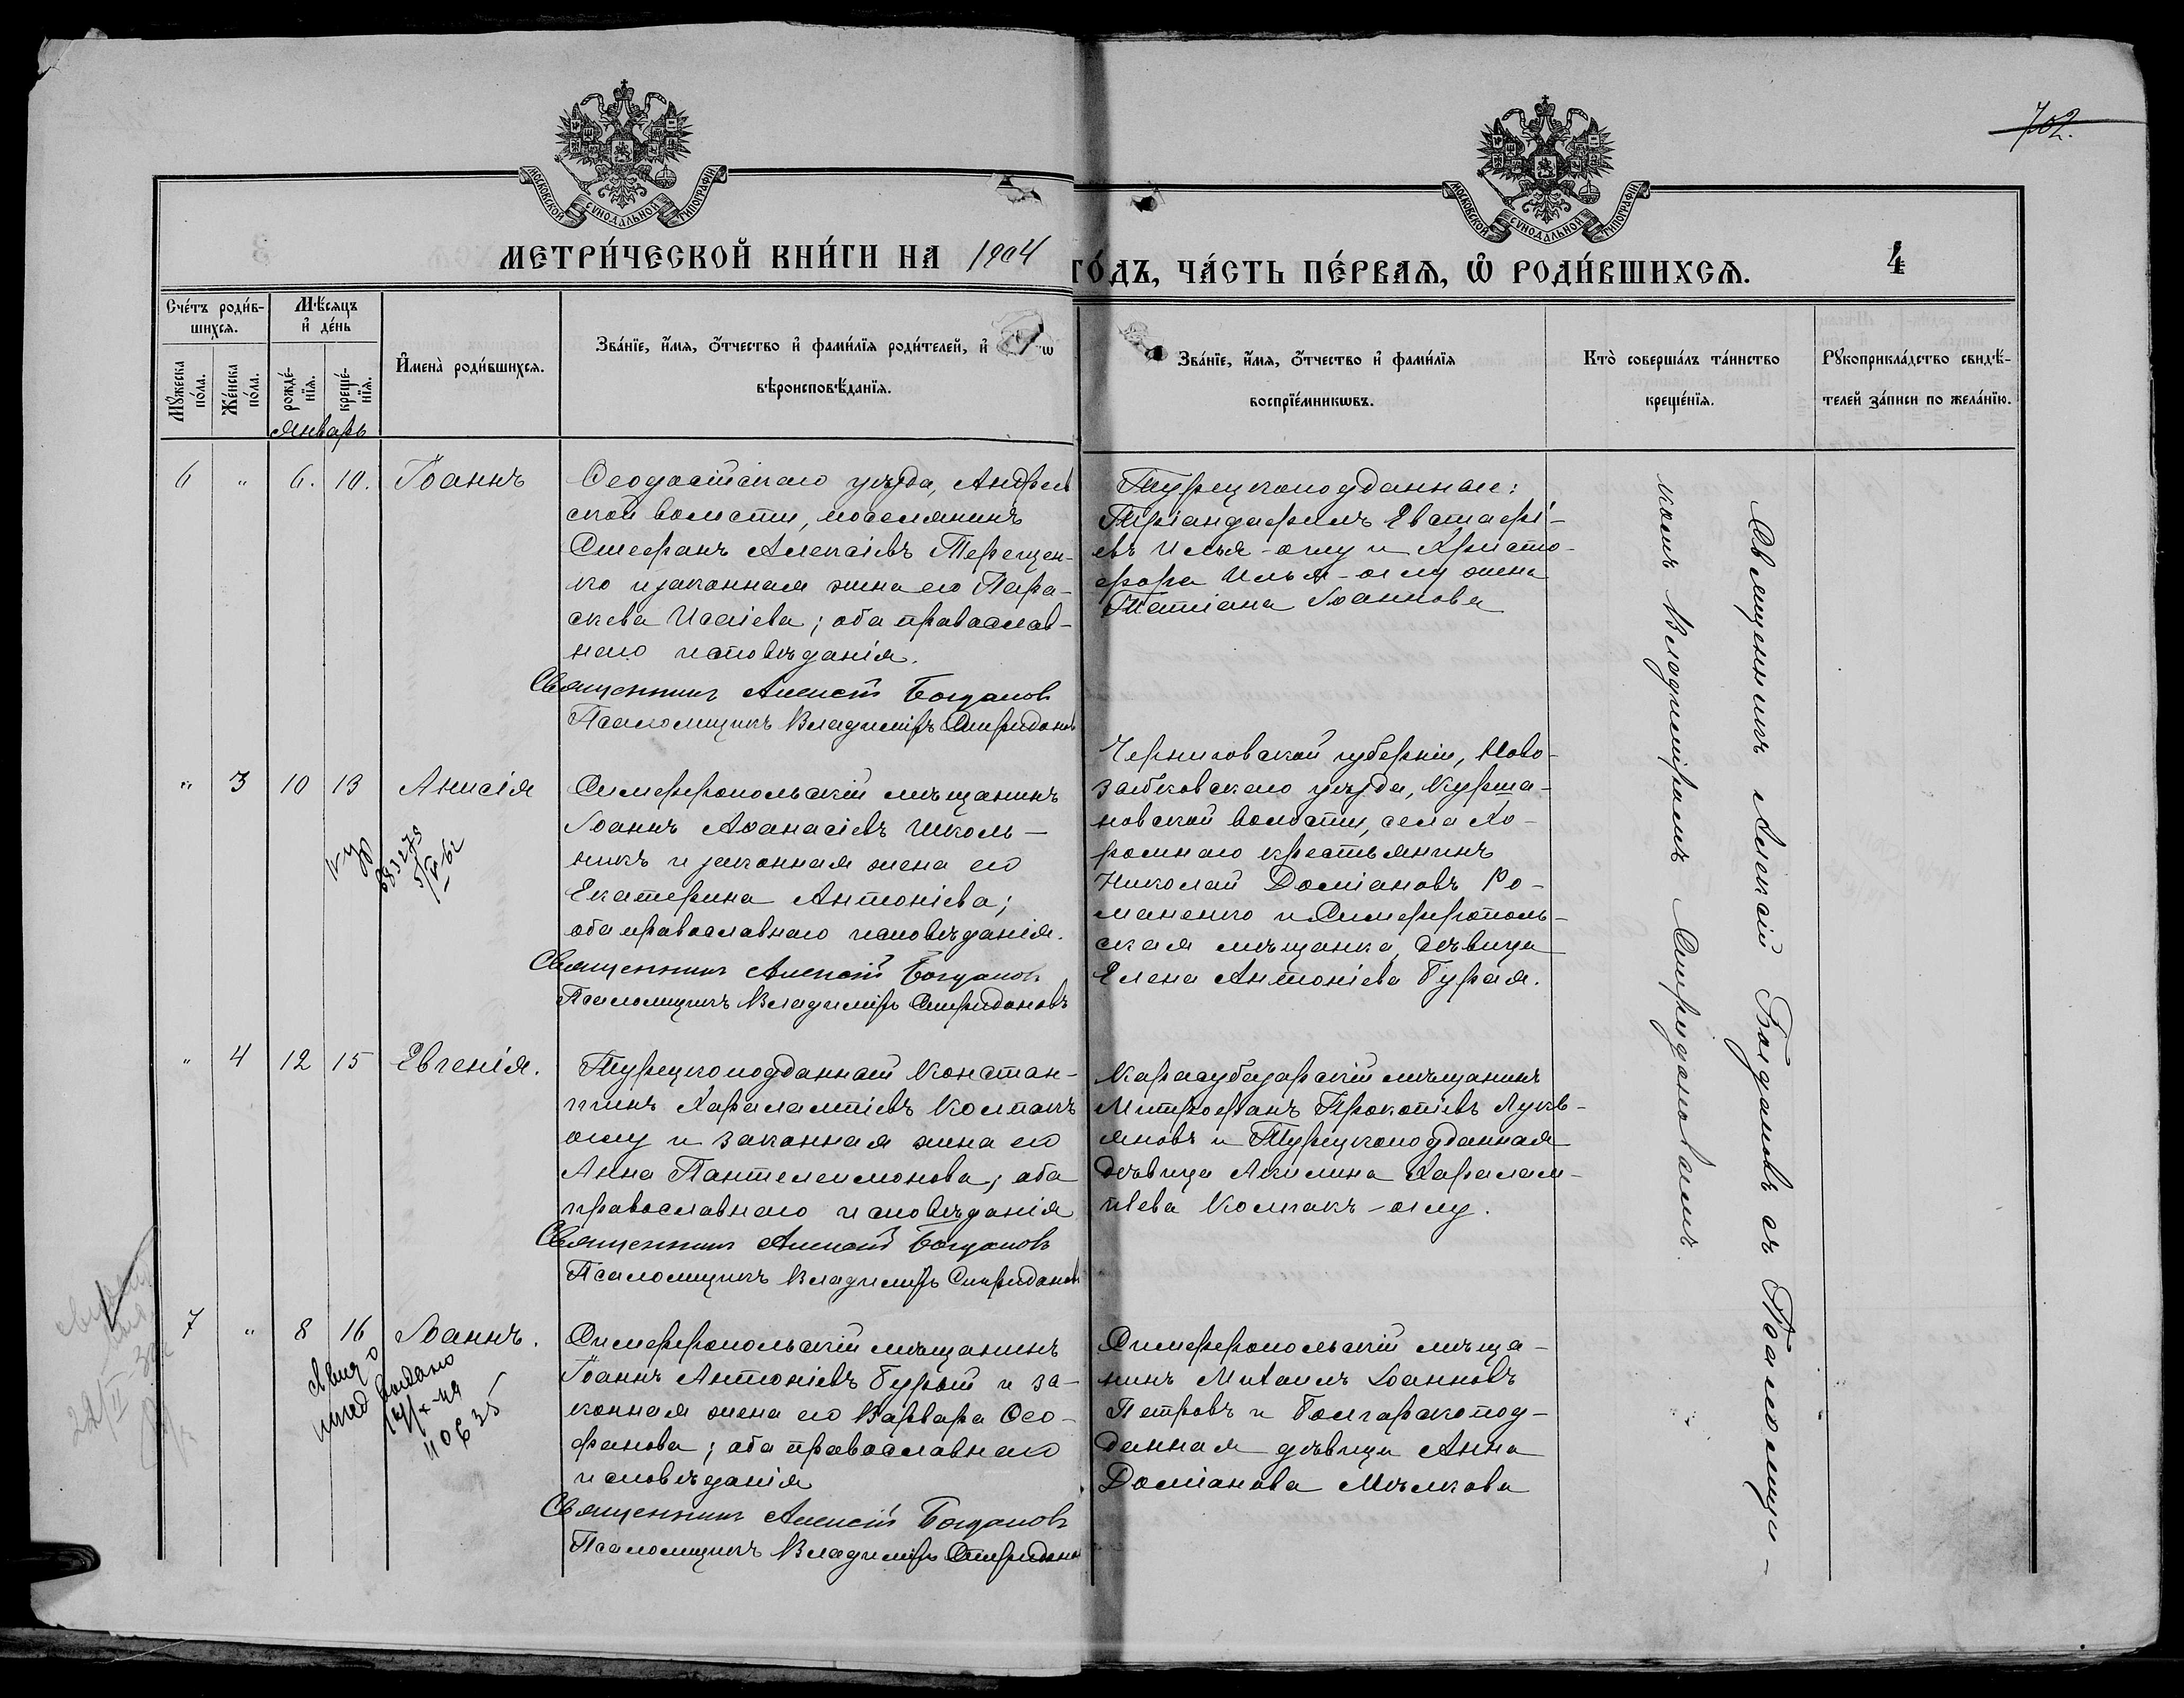 702.
МОСКОВСКОЙ СУНОДАЛЬНОЙ ТИПОГРАФІИ
МОСКОВСКОЙ СУНОДАЛЬНОЙ ТИПОГРАФІИ
МЕТРИ́ЧЕСКОЙ КНИ́ГИ НА 1904
ГО́ДЪ, ЧА́СТЬ ПЕ́РВАѦ, Ѡ҆ РОДИ́ВШИХСѦ.
4
Сче́тъ роди́в-
шихсѧ.
Мѣ́сѧцъ
и҆ де́нь
Мꙋ́жеска
по́ла.
Же́нска
по́ла.
рожде́-
нїѧ.
креще́-
нїѧ.
Январь
И҆мена̀ роди́вшихсѧ.
Зва́нїе, и҆́мѧ, ѻ҆́тчество и҆ фами́лїѧ роди́телей, и҆
вѣроисповѣ́данїѧ.
Зва́нїе, и҆́мѧ, ѻ҆́тчество и҆ фами́лїѧ
воспрїе́мникѡвъ.
Кто̀ соверша́лъ та́инство
креще́нїѧ.
Рꙋкоприкла́дство свидѣ́-
телей за́писи по жела́нїю.
6 " 6. 10. Іоаннъ
Ѳеодосійскаго уѣзда, Андреев
ской волости, поселянинъ
Стефанъ Алексіевъ Терещен-
ко и законная жена его Пара-
скева Исаіева; оба православ-
наго исповѣданія.
Священникъ Алексій Богданов
Псаломщикъ Владиміръ Спиридонов
Турецкоподданные:
Тріандафилъ Евстафі-
евъ Илья-оглу и Христо-
фора Илья-оглу жена
Татіана Іоаннова
" 3 10 13 Анисія
Симферопольскій мѣщанинъ
Іоаннъ Аѳанасіевъ Школь-
никъ и законная жена его
Екатерина Антоніева;
оба православнаго исповѣданія.
Священникъ Алексій Богданов
Псаломщикъ Владиміръ Спиридоновъ
Черниговской губерніи, Ново-
зыбковскаго уѣзда,
новской волости, села Хо-
ромнаго крестьянинъ
Николай Доміановъ Ро-
маненко и Симферополь-
ская мѣщанка, дѣвица
Елена Антоніева Гурая.
" 4 12 15 Евгенія.
Турецкоподданный Констан-
тинъ Харалампіевъ Колпакъ
оглу и законная жена его
Анна Пантелеимонова; оба
православнаго исповѣданія
Священникъ Алексій Богдановъ
Псаломщикъ Владиміръ Спиридонов
Карасубазарскій мѣщанинъ
Митрофанъ Прокопіевъ Лукь-
яновъ и Турецкоподданная
дѣвица Акилина Харалам-
піева Колпакъ-оглу.
7 " 8 16 Іоаннъ.
Симферопольскій мѣщанинъ
Іоаннъ Антоніевъ Гурый и за-
конная жена его Варвара Ѳео-
фанова; оба православнаго
исповѣданія
Священникъ Алексій Богдановъ
Псаломщикъ Владиміръ Спиридонов
Симферопольскій мѣща-
нинъ Михаилъ Іоанновъ
Петровъ и Болгарскопод-
данная дѣвица Анна
Доміанова
Священникъ Алексій Богдановъ съ Псаломщи-
комъ Владиміромъ Спиридоновымъ.